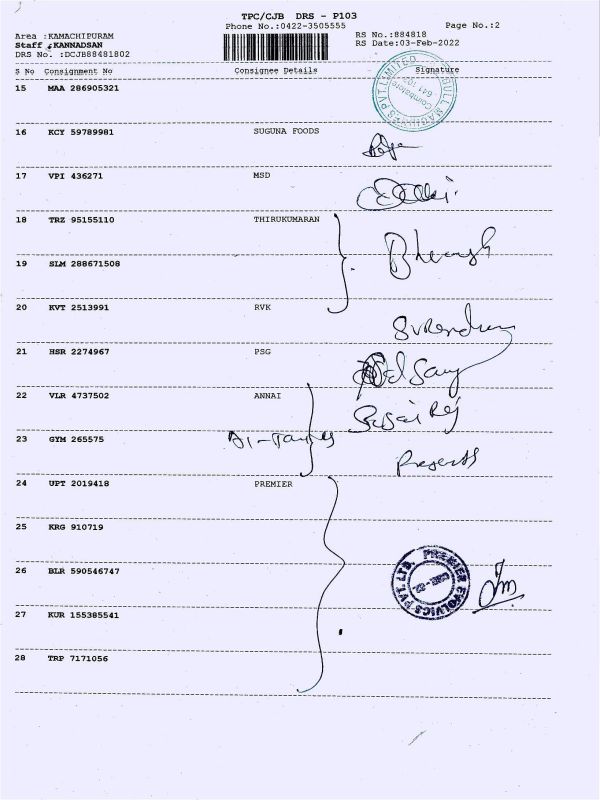 TPC/CJB DRS - P103
Phone No.:0422-3505555 Page No.:2
Area :KAMACHIPURAM RS No.:884818
Staff :KANNADSAN RS Date:03-Feb-2022
DRS No. :DCJB88481802
S No Consignment No Consignee Details Signature
15 MAA 286905321
16 KCY 59789981 SUGUNA FOODS
17 VPI 436271 MSD
18 TRZ 95155110 THIRUKUMARAN
19 SLM 288671508
20 KVT 2513991 RVK
Surendran
21 HSR 2274967 PSG
22 VLR 4737502 ANNAI
23 GYM 265575
24 UPT 2019418 PREMIER
25 KRG 910719
26 BLR 590546747
PREMIER EVOLVICS PVT. LTD.
27 KUR 155385541
28 TRP 7171056